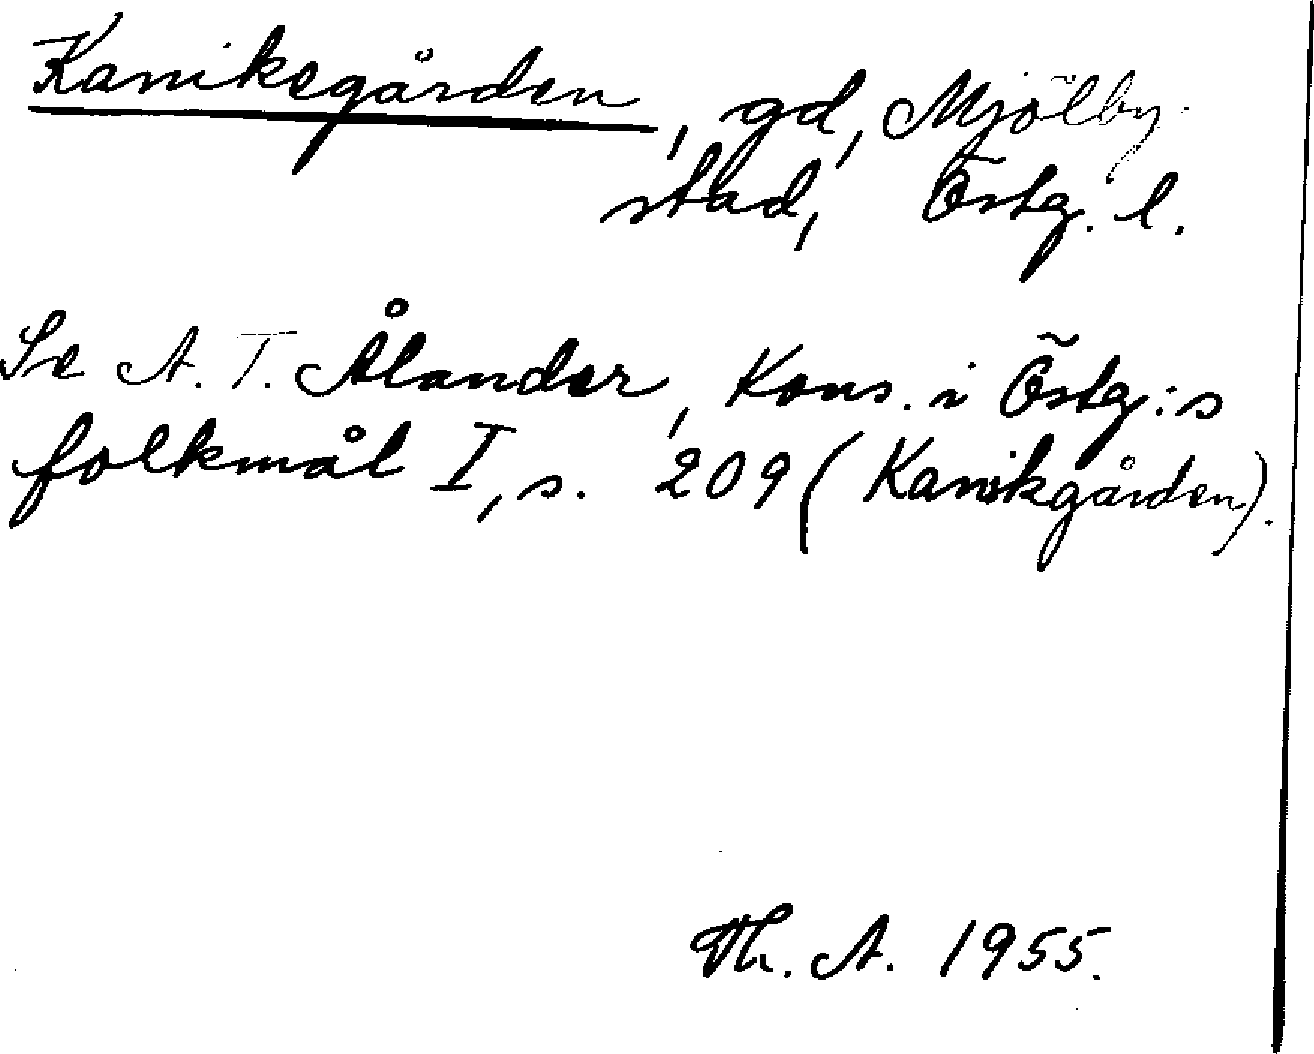 Kaniksgården, gd, Mjölby
stad, Östg. l.
Se A. T. Ålander, Kons. i Östg:s
folkmål I, s. 209 (Kanikgården).
Th. A. 1955.